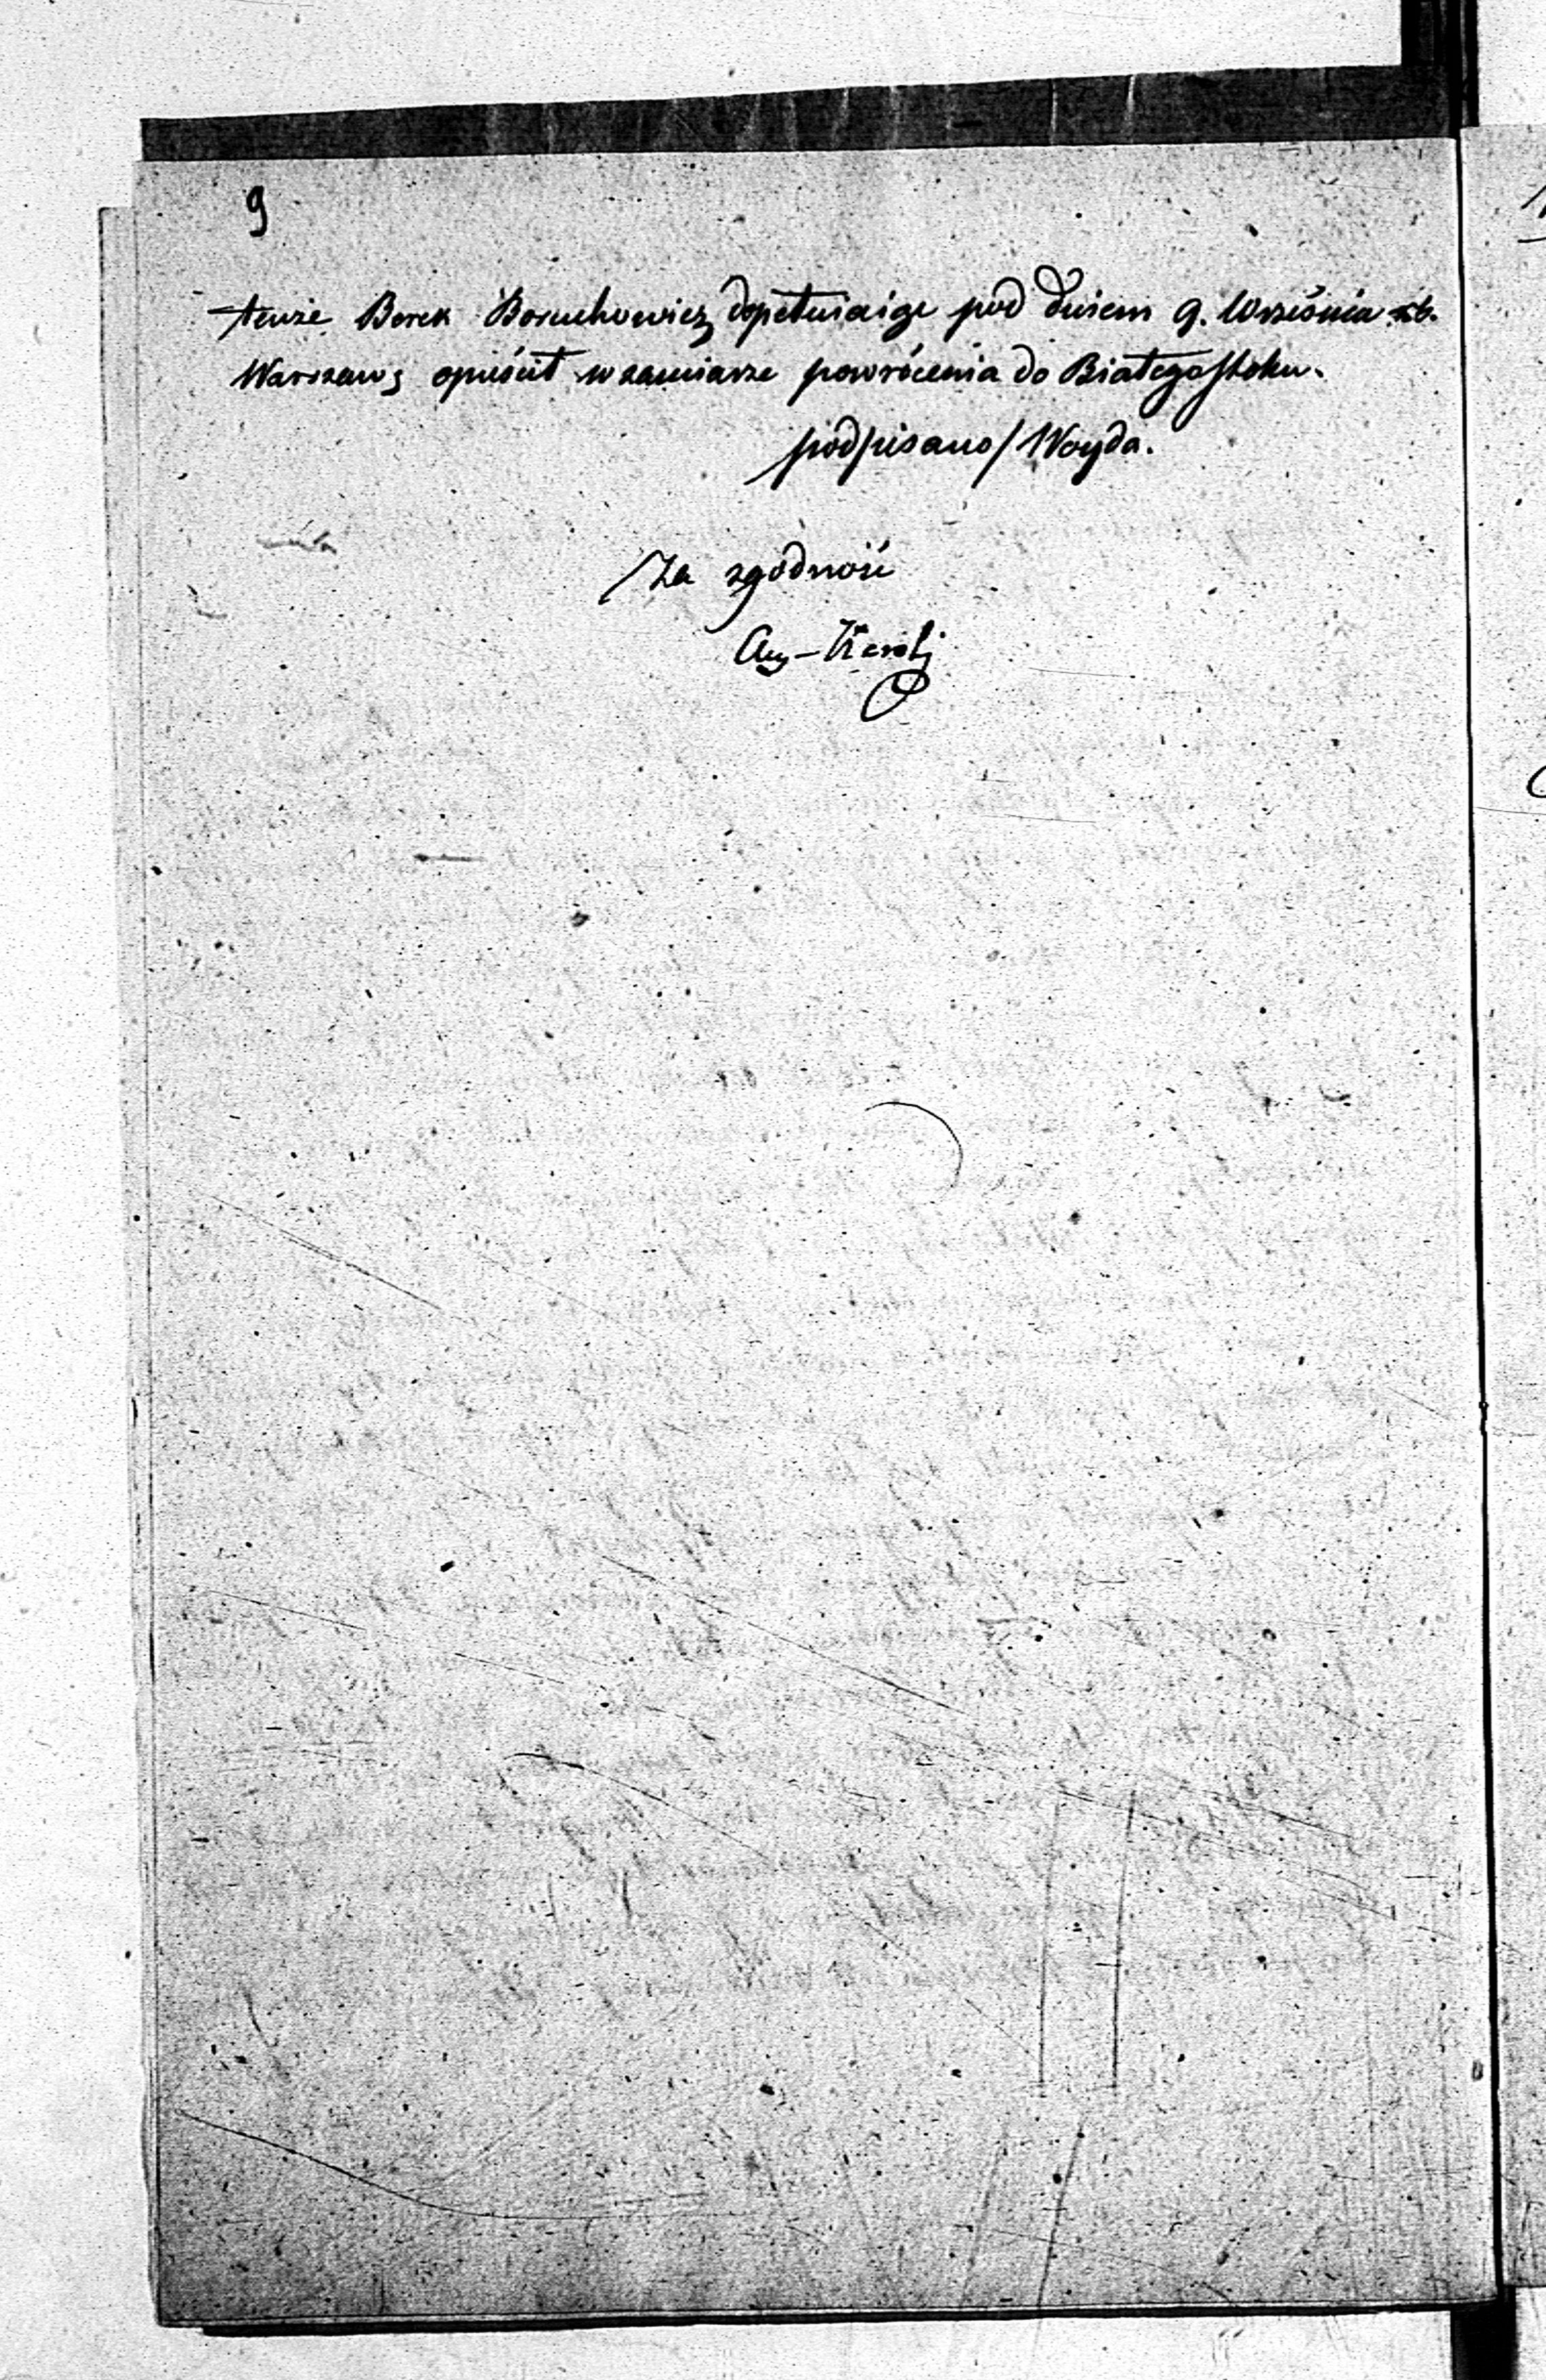 9
tenże Borek Boruchowicz dopełniaiąc pod dniem 9. Września rb.
Warszawę opuścił w zamiarze powrócenia do Białegostoku.
podpisano/Woyda.
Za zgodność